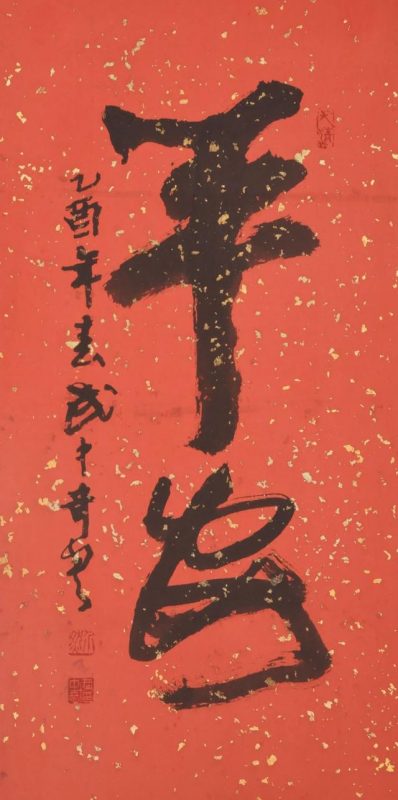 平安
乙酉年春武中奇